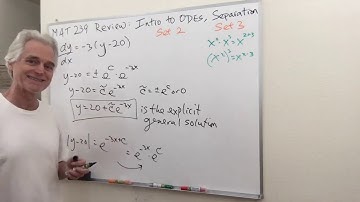 MAT 239 Review: Intro to ODEs, Separation
Set 2 Set 3
dy/dx = -3(y-20)
x^a · x^b = x^{a+b}
y-20 = ± e^c · e^{-3x}
y-20 = c̃ e^{-3x} c̃ = ± e^c or 0
y = 20 + c̃ e^{-3x} is the explicit
general solution
|y-20| = e^{-3x+c}
= e^{-3x} e^c